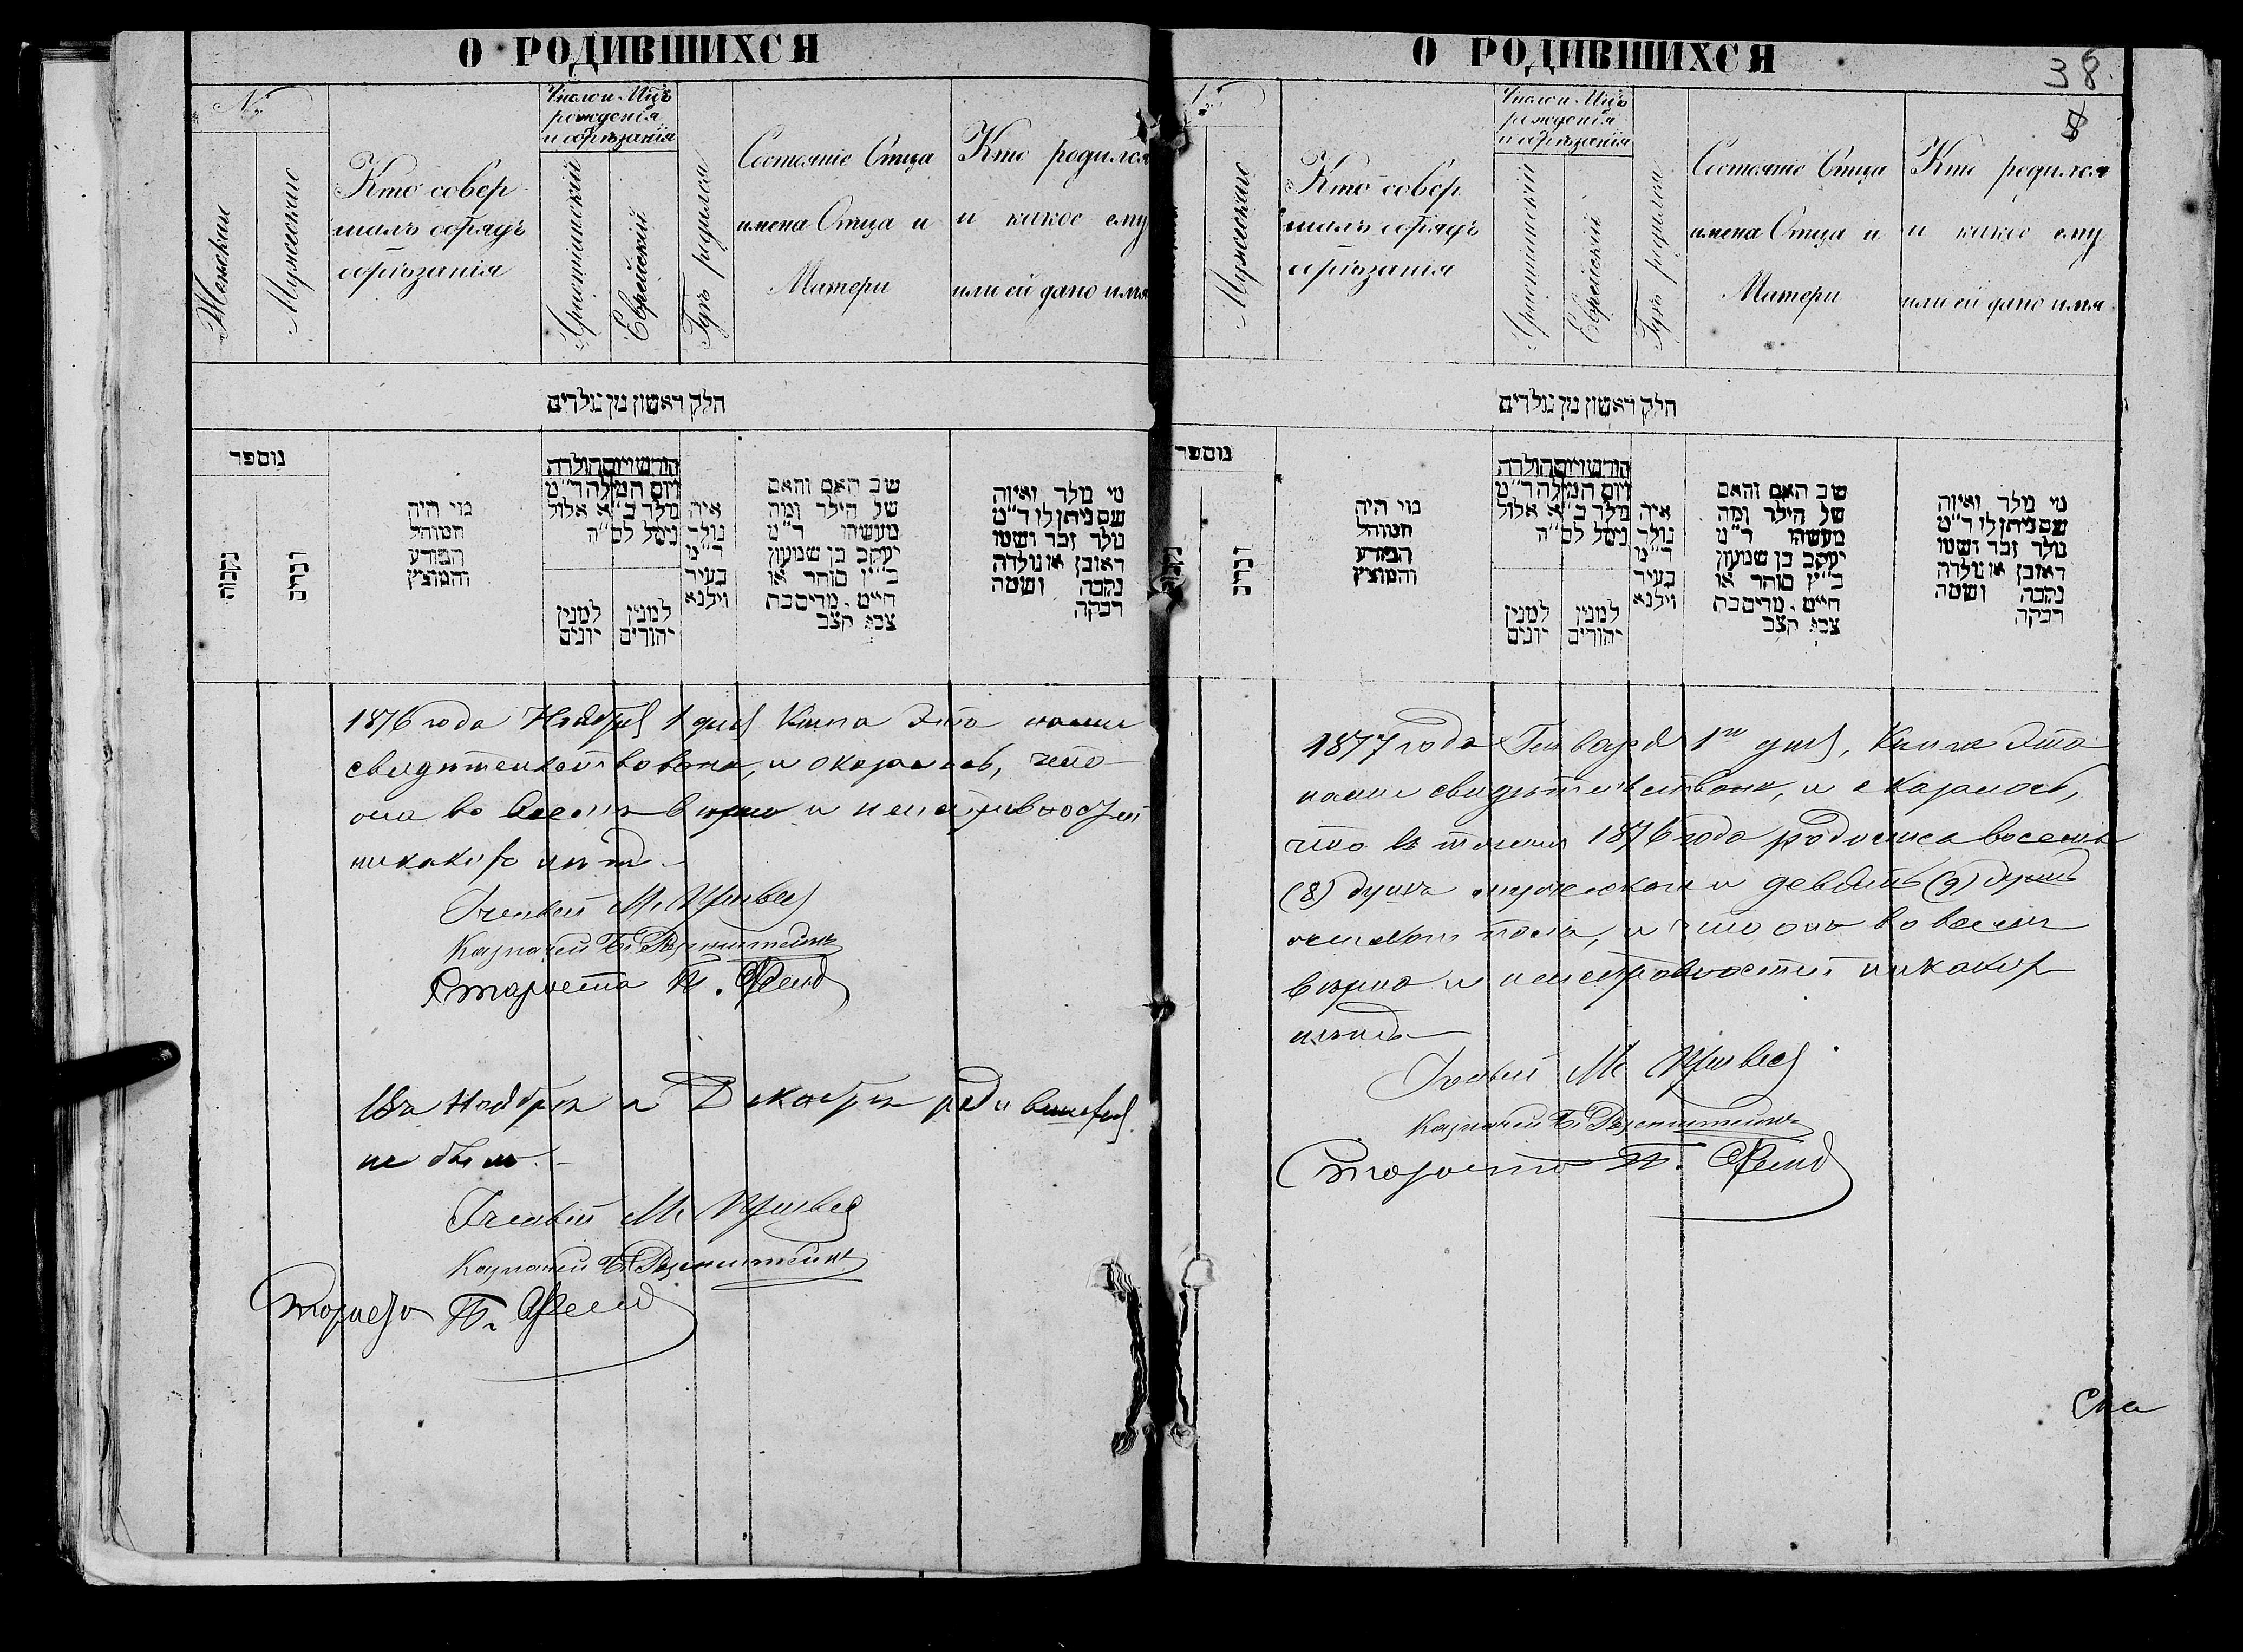 О РОДИВШИХСЯ
№
Женскаго
Мужескаго
Кто совер
шалъ обрядъ
обрѣзанія
Число и Мцъ
рожденія
и обрѣзанія
Христіанскій
Еврейскій
Гдѣ родился
Состояніе Отца
имена Отца и
Матери
Кто родился
и какое ему
или ей дано имя
חלק ראשון מן נולדים
מספר
נקבות
זכרים
מי היה
המוהל
הפורע
והמוצץ
חודש ויום הולדת
ויום המילה ד"מ
נולד ב"א אלול
נימל לס"ה
למנין
יונים
למנין
יהודים
איה
נולד
ד"מ
בעיר
וילנא
שם האב והאם
של הילד ומה
מעשהו ד"מ
יעקב בן שמעון
כ"ץ סוחר או
חיים. מרים בת
צבי קצב
מי נולד ואיזה
שם ניתן לו ד"מ
נולד זכר ושמו
ראובן או נולדה
נקבה ושמה
רבקה
1876 года Ноября 1 дня Книга эта нами
свидѣтельствована, и оказалось, что
она во всемъ вѣрна и неисправностей
никакихъ нѣтъ
Казначей Б. Розенштейнъ
Староста
Въ Ноябрѣ и Декабрѣ родившихся
не было.
Казначей Б. Розенштейнъ
Староста
О РОДИВШИХСЯ
38
8
Мужескаго
Кто совер
шалъ обрядъ
обрѣзанія
Число и Мцъ
рожденія
и обрѣзанія
Христіанскій
Еврейскій
Гдѣ родился
Состояніе Отца
имена Отца и
Матери
Кто родился
и какое ему
или ей дано имя
חלק ראשון מן נולדים
מספר
נקבות
זכרים
מי היה
המוהל
הפורע
והמוצץ
חודש ויום הולדת
ויום המילה ד"מ
נולד ב"א אלול
נימל לס"ה
למנין
יונים
למנין
יהודים
איה
נולד
ד"מ
בעיר
וילנא
שם האב והאם
של הילד ומה
מעשהו ד"מ
יעקב בן שמעון
כ"ץ סוחר או
חיים. מרים בת
צבי קצב
מי נולד ואיזה
שם ניתן לו ד"מ
נולד זכר ושמו
ראובן או נולדה
נקבה ושמה
רבקה
1877 года Генваря 1го дня, Книга эта
нами свидѣтельствована, и оказалось,
что въ теченіи 1876 года родилися восемь
(8) душъ мужескаго и девять (9) душъ
женскаго пола, и что она во всемъ
вѣрна и неисправностей никакихъ
нѣтъ
Казначей Б. Розенштейнъ
Староста